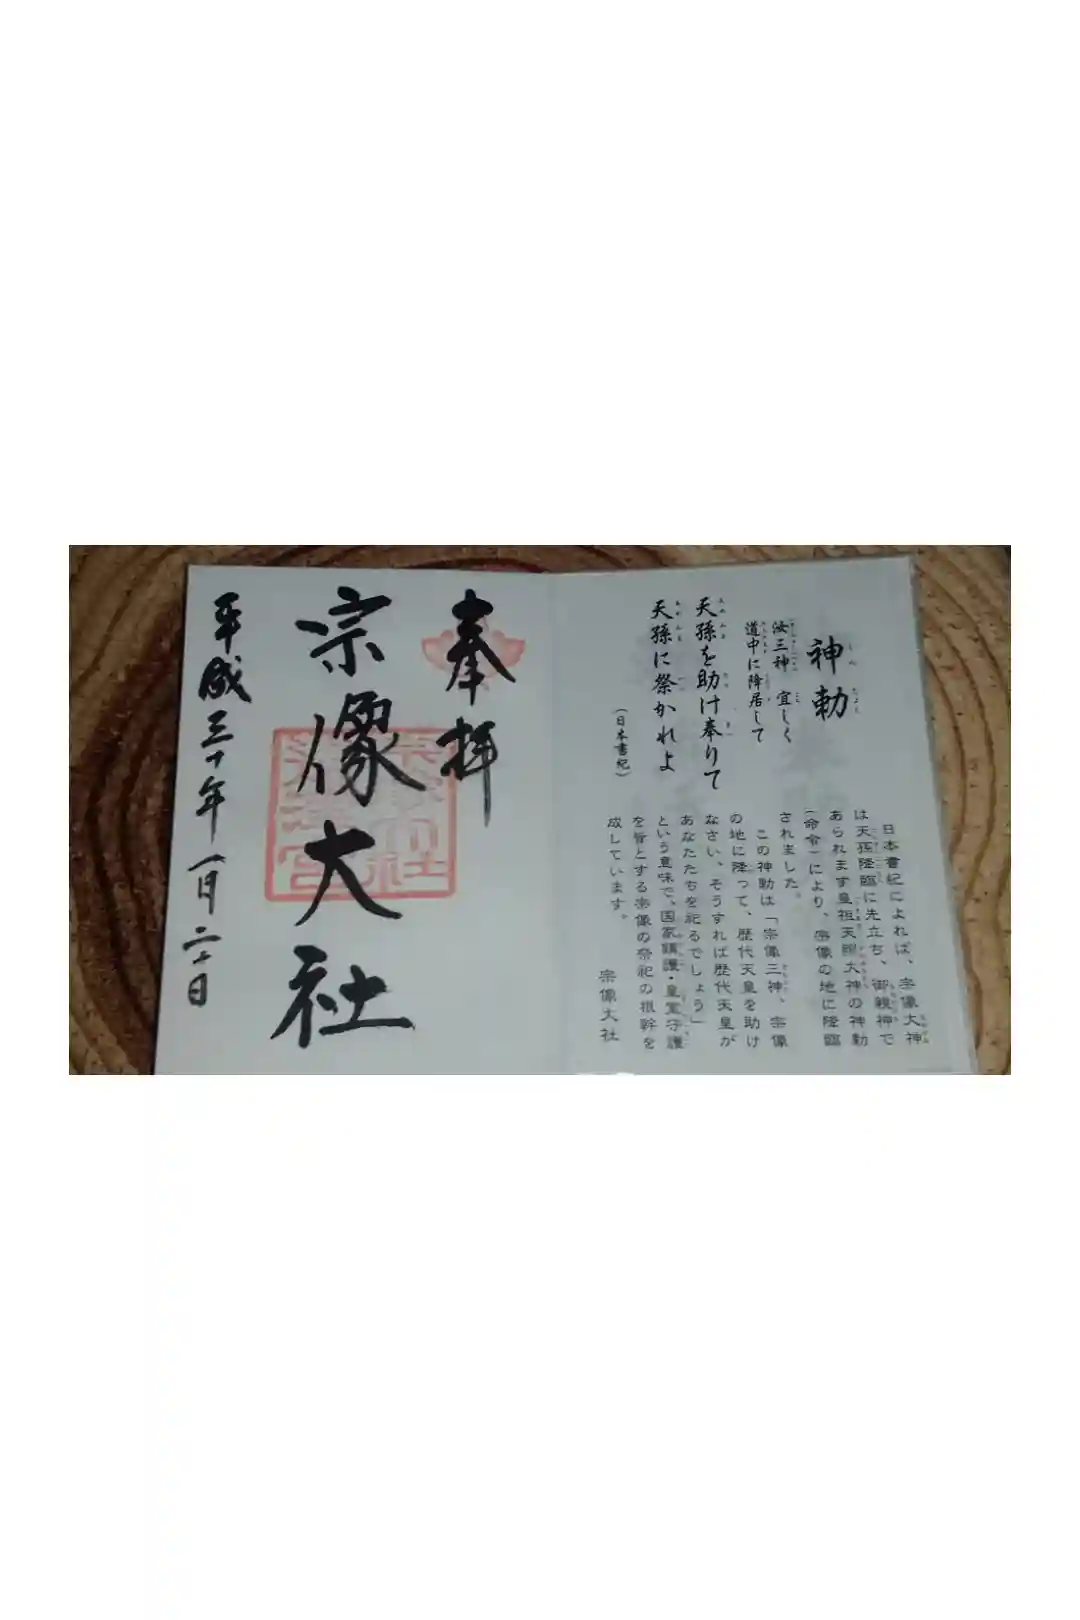 神勅
汝三神 宜しく
道中に降居して
天孫を助け奉りて
天孫に祭かれよ
(日本書紀)
日本書紀によれば、宗像大神
は天孫降臨に先立ち、御親神で
あられます皇祖天照大神の神勅
(命令)により、宗像の地に降臨
されました。
この神勅は「宗像三神、宗像
の地に降って、歴代天皇を助け
なさい、そうすれば歴代天皇が
あなたたちを祀るでしょう」
という意味で、国家鎮護・皇室守護
を旨とする宗像の祭祀の根幹を
成しています。
宗像大社
奉拝
宗像大社
平成三十年一月二十日